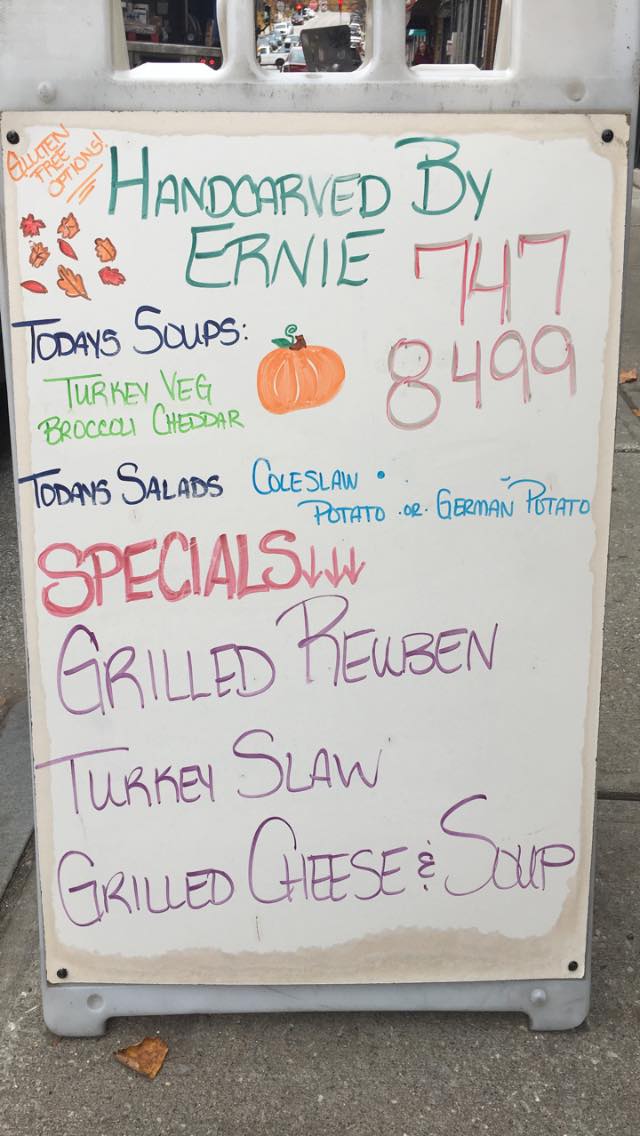 GLUTEN
FREE
OPTIONS!
HANDCARVED BY
ERNIE
747
8499
TODAYS SOUPS:
TURKEY VEG
BROCCOLI CHEDDAR
TODAYS SALADS COLESLAW •
POTATO OR GERMAN POTATO
SPECIALS↓↓↓
GRILLED REUBEN
TURKEY SLAW
GRILLED CHEESE & SOUP